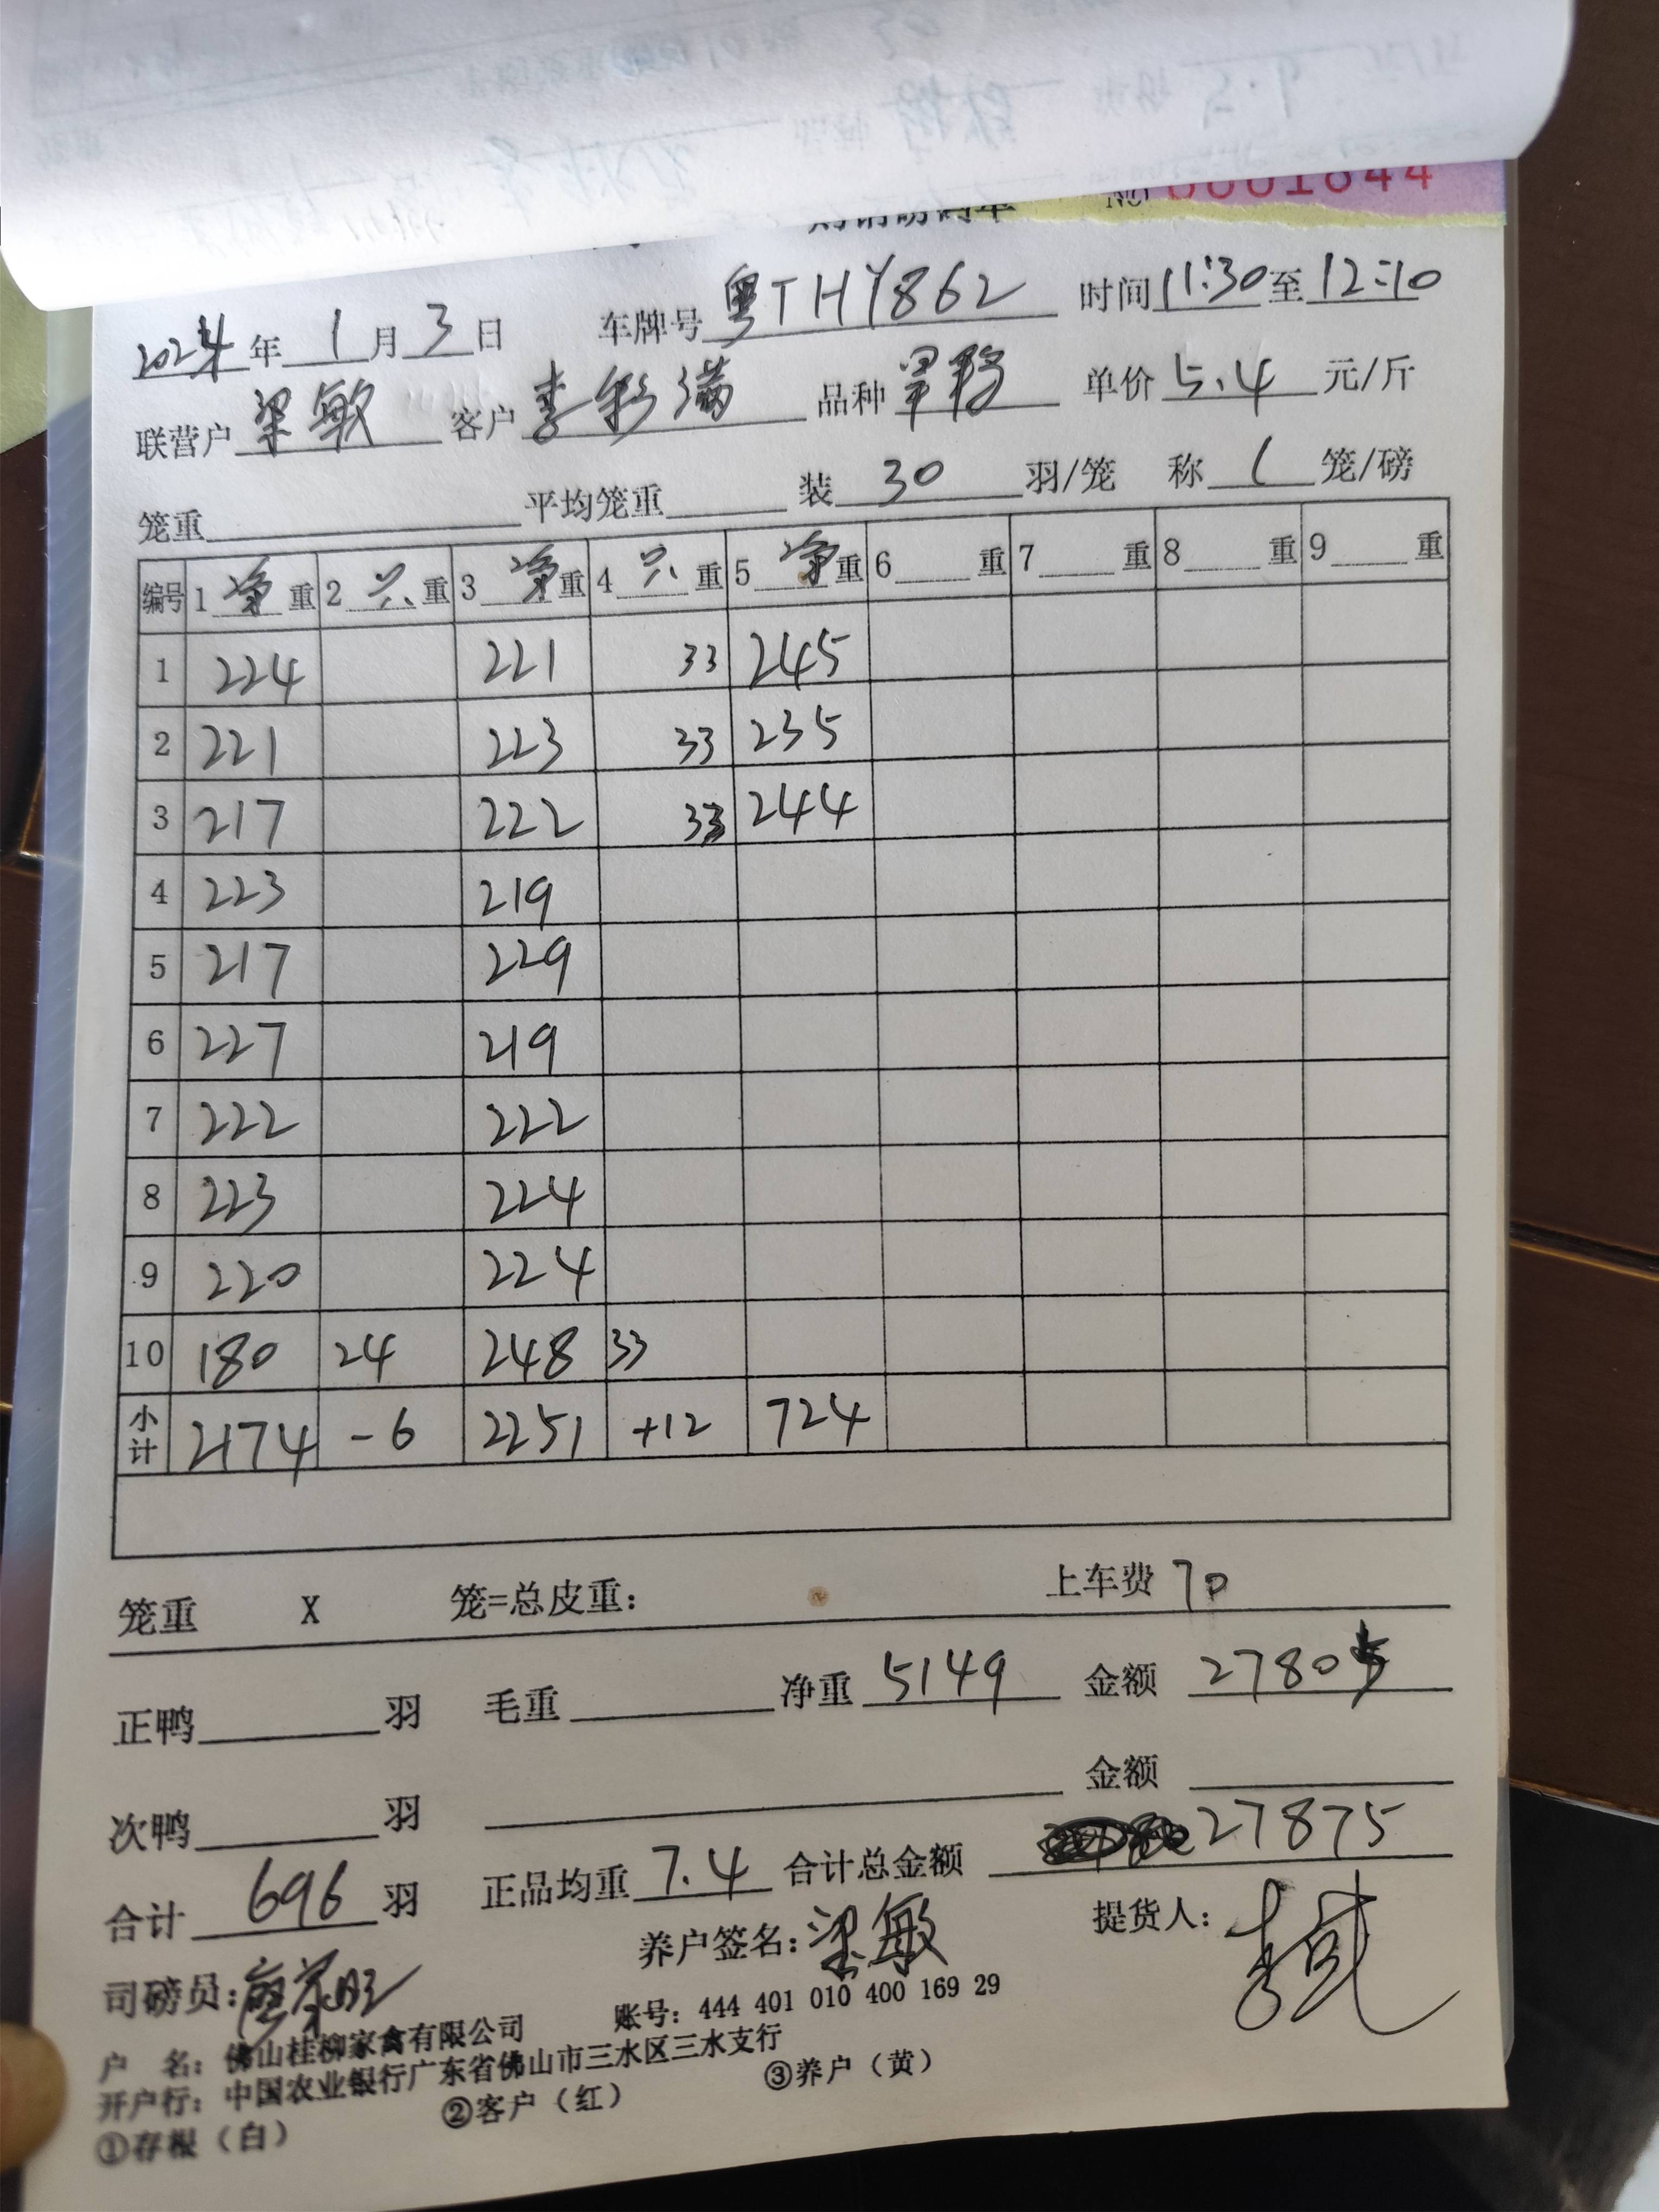 NO 0001844
2024年 1月3日 车牌号 粤THY862 时间 11:30至12:10
联营户 梁敏 客户 李彩满 品种 单价 5.4 元/斤
笼重 平均笼重 装 30 羽/笼 称 1 笼/磅
编号 1 净重 2 只重 3 净重 4 只重 5 净重 6 重 7 重 8 重 9 重
1 224 221 33 245
2 221 223 33 235
3 217 222 33 244
4 223 219
5 217 229
6 227 219
7 222 222
8 223 224
9 220 224
10 180 24 248 33
小计 2174 -6 2251 +12 724
笼重 X 笼=总皮重: 上车费 70
正鸭 羽 毛重 净重 5149 金额 27805
次鸭 羽 金额
合计 696 羽 正品均重 7.4 合计总金额 27875
司磅员: 养户签名: 梁敏 提货人:
户 名: 佛山桂柳家禽有限公司 账号: 444 401 010 400 169 29
开户行: 中国农业银行广东省佛山市三水区三水支行
①存根（白） ②客户（红） ③养户（黄）